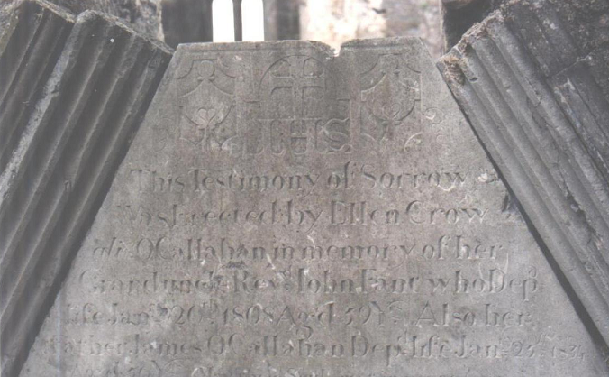 IHS
This Testimony of Sorrow
Was Erected by Ellen Crow
O Callahan in memory of her
Grand uncle Revd. John Lane who Depd.
life Jany. 20th. 1808 Aged 59 Ys. Also her
Father James O Callahan Depd. life Jan 23